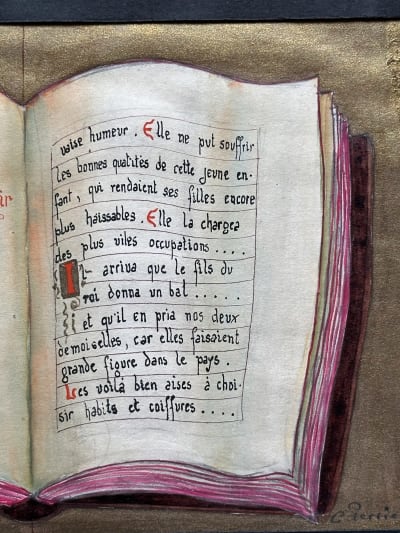 vaise humeur. Elle ne put souffrir
les bonnes qualités de cette jeune en-
fant, qui rendaient ses filles encore
plus haissables. Elle la chargea
des plus viles occupations....
Il arriva que le fils du
roi donna un bal.....
et qu'il en pria nos deux
demoiselles, car elles faisaient
grande figure dans le pays.
Les voilà bien aises à choi-
sir habits et coiffures....
ir